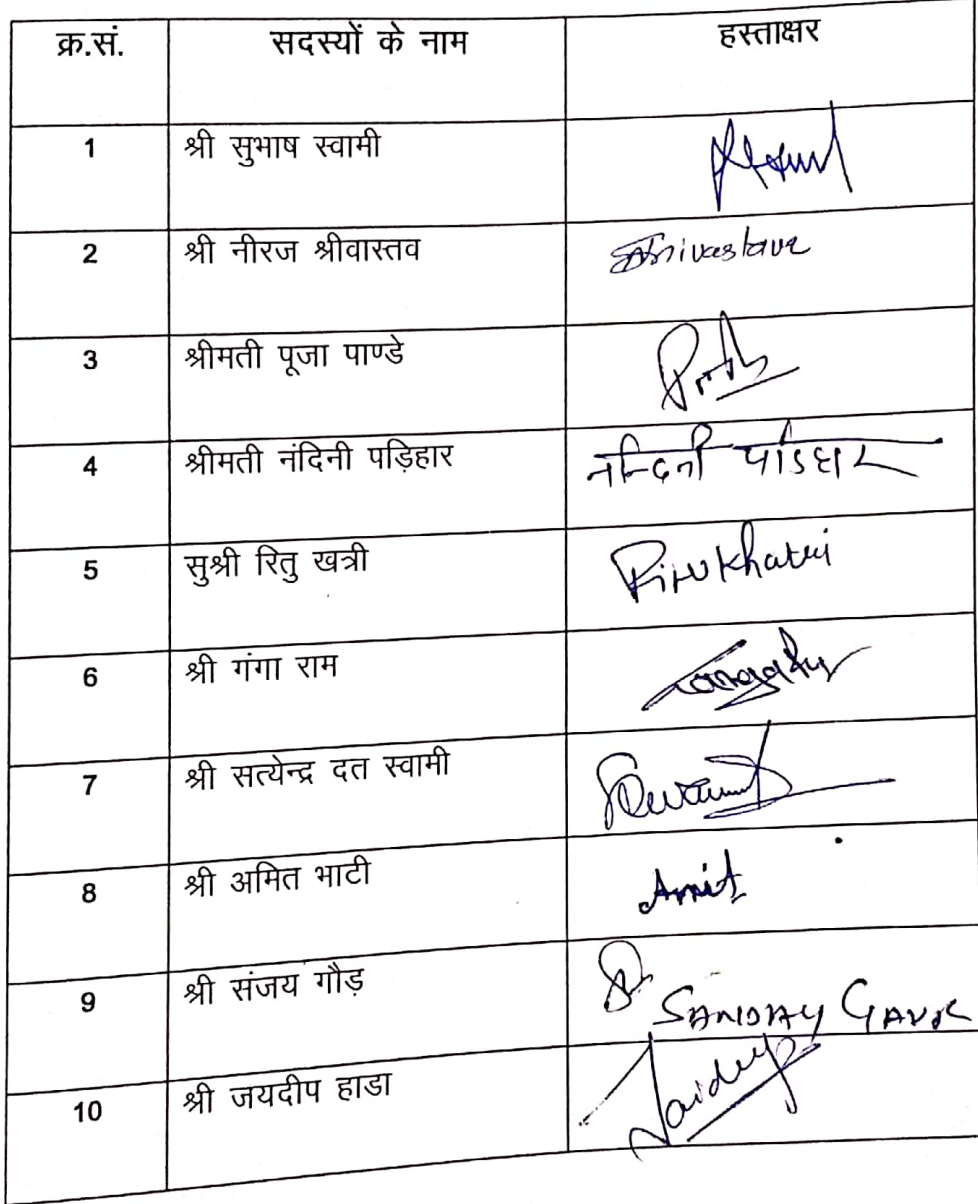 क्र.सं. सदस्यों के नाम हस्ताक्षर
1 श्री सुभाष स्वामी
2 श्री नीरज श्रीवास्तव Shrivastava
3 श्रीमती पूजा पाण्डे
4 श्रीमती नंदिनी पड़िहार नन्दिनी पडिहार
5 सुश्री रितु खत्री Ritu Khatri
6 श्री गंगा राम
7 श्री सत्येन्द्र दत स्वामी
8 श्री अमित भाटी Amit
9 श्री संजय गौड़ SANJAY GAUR
10 श्री जयदीप हाडा Jaideep